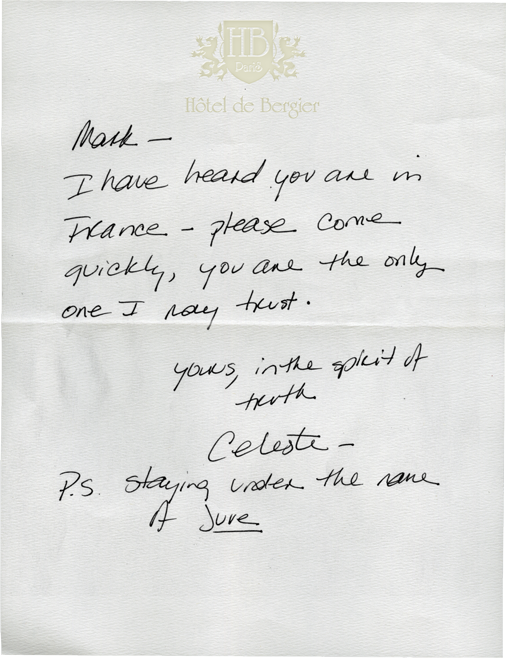 HB
Paris
Hôtel de Bergier
Mark —
I have heard you are in
France - please come
quickly, you are the only
one I may trust.
yours, in the spirit of
truth
Celeste -
P.S. staying under the name
of Juve